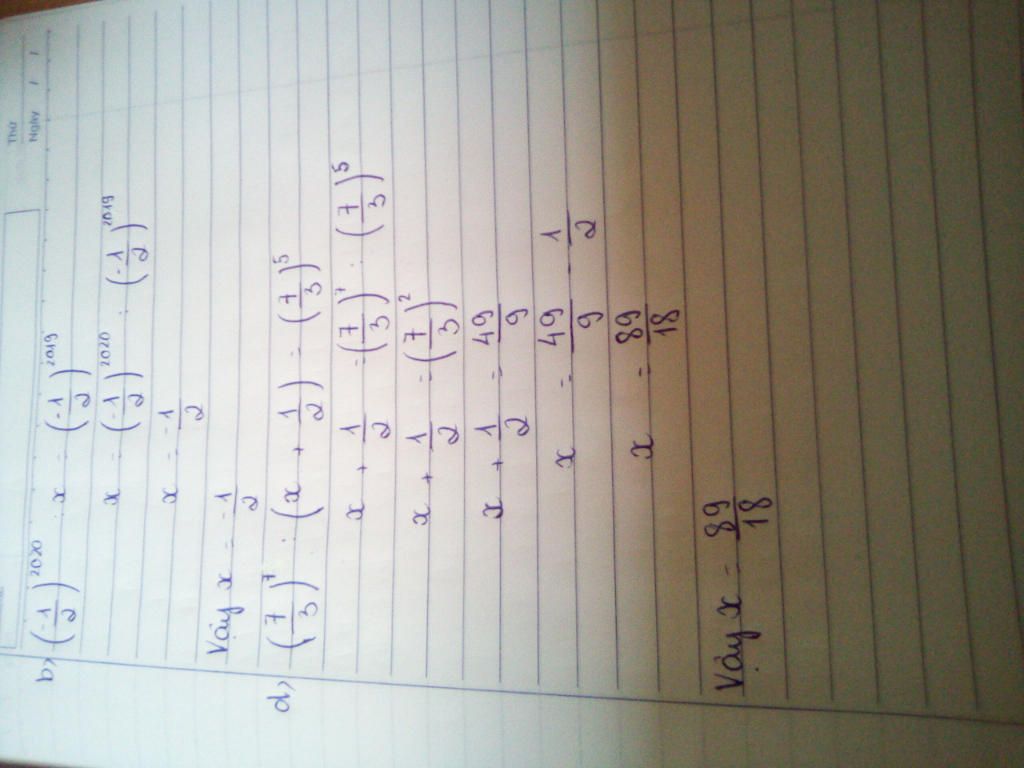 Thứ
Ngày / /
b) (-1/2)^2020 : x = (-1/2)^2019
x = (-1/2)^2020 : (-1/2)^2019
x = -1/2
Vậy x = -1/2
d) (7/3)^7 : (x + 1/2) = (7/3)^5
x + 1/2 = (7/3)^7 : (7/3)^5
x + 1/2 = (7/3)^2
x + 1/2 = 49/9
x = 49/9 - 1/2
x = 89/18
Vậy x = 89/18